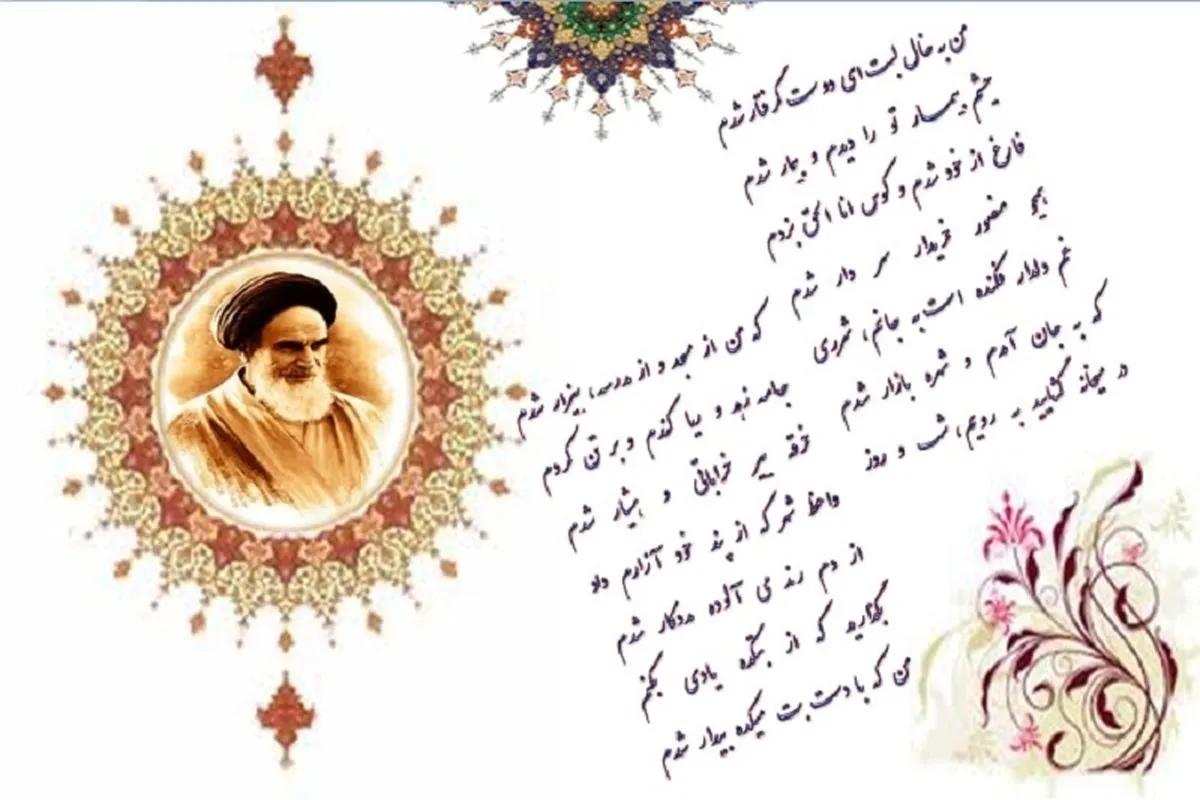 من به خال لبت ای دوست گرفتار شدم
چشم بیمار تو را دیدم و بیمار شدم
فارغ از خود شدم و کوس انا الحق بزدم
همچو منصور خریدار سر دار شدم
غم دلدار فکنده است به جانم، شرری
که به جان آمدم و شهره بازار شدم
در میخانه گشایید به رویم، شب و روز
که من از مسجد و از مدرسه، بیزار شدم
جامه زهد و ریا کندم و بر تن کردم
خرقه پیر خراباتی و هشیار شدم
واعظ شهر که از پند خود آزارم داد
از دم رند می آلوده مددکار شدم
بگذارید که از بتکده یادی بکنم
من که با دست بت میکده بیدار شدم